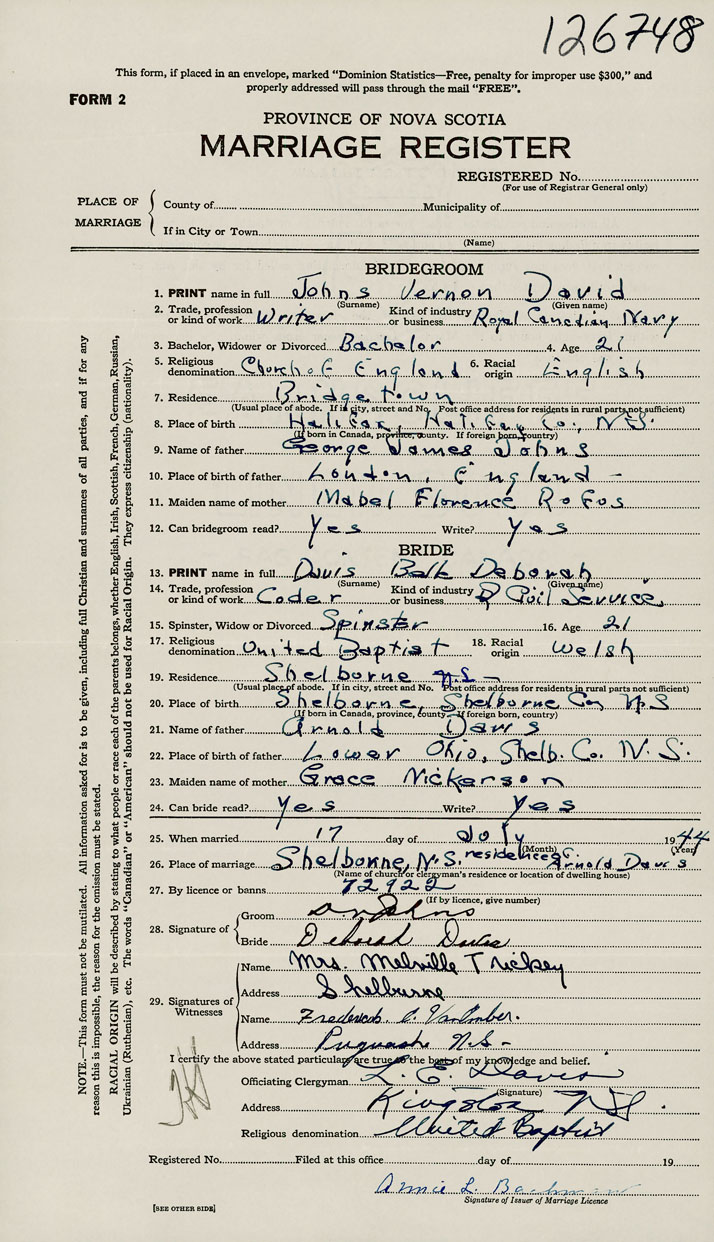 126748
This form, if placed in an envelope, marked "Dominion Statistics—Free, penalty for improper use $300," and
properly addressed will pass through the mail "FREE".
FORM 2
PROVINCE OF NOVA SCOTIA
MARRIAGE REGISTER
REGISTERED No.
(For use of Registrar General only)
PLACE OF MARRIAGE
County of Municipality of
If in City or Town
(Name)
BRIDEGROOM
1. PRINT name in full Johns Vernon David
(Surname) (Given name)
2. Trade, profession or kind of work Writer Kind of industry or business Royal Canadian Navy
3. Bachelor, Widower or Divorced Bachelor 4. Age 21
5. Religious denomination Church of England 6. Racial origin English
7. Residence Bridgetown
(Usual place of abode. If in city, street and No. Post office address for residents in rural parts not sufficient)
8. Place of birth Halifax, Halifax Co., N.S.
(If born in Canada, province, county. If foreign born, country)
9. Name of father George James Johns
10. Place of birth of father London, England
11. Maiden name of mother Mabel Florence Rofos
12. Can bridegroom read? Yes Write? Yes
BRIDE
13. PRINT name in full Davis Deborah
(Surname) (Given name)
14. Trade, profession or kind of work Coder Kind of industry or business Civil Service
15. Spinster, Widow or Divorced Spinster 16. Age 21
17. Religious denomination United Baptist 18. Racial origin Welsh
19. Residence Shelburne N.S.
(Usual place of abode. If in city, street and No. Post office address for residents in rural parts not sufficient)
20. Place of birth Shelborne, Shelborne Co. N.S
(If born in Canada, province, county. If foreign born, country)
21. Name of father Arnold Davis
22. Place of birth of father Lower Ohio, Shelb. Co. N.S.
23. Maiden name of mother Grace Nickerson
24. Can bride read? Yes Write? Yes
25. When married 17 day of July 1944
(Month) (Year)
26. Place of marriage Shelborne, N.S. residence of Arnold Davis
(Name of church or clergyman's residence or location of dwelling house)
27. By licence or banns 72922
(If by licence, give number)
28. Signature of Groom Johns
Bride Deborah Davis
29. Signatures of Witnesses Name Mrs. Melville Trickey
Address Shelburne
Name Frederick C.
Address Pugwash N.S.
I certify the above stated particulars are true to the best of my knowledge and belief.
Officiating Clergyman L. E. Davis
(Signature)
Address Kingston N.S.
Religious denomination United Baptist
Registered No. Filed at this office day of 19
Annie L.
Signature of Issuer of Marriage Licence
[SEE OTHER SIDE]
NOTE.—This form must not be mutilated. All information asked for is to be given, including full Christian and surnames of all parties, and if for any
reason this is impossible, the reason for the omission must be stated.
RACIAL ORIGIN will be described by stating to what people or race each of the parents belongs, whether English, Irish, Scottish, French, German, Russian,
Ukrainian (Ruthenian), etc. The words "Canadian" or "American" should not be used for Racial Origin. They express citizenship (nationality).